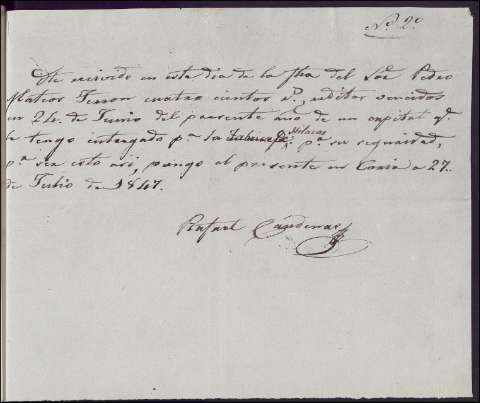 Nº 2º
He recivido en este dia de la fha del Sor Pedro
Mateos Terron cuatro cientos rs, reditos vencidos
en 24 de Junio del presente año de un capital qe
le tengo entregado pa la pa su seguridad,
pa sea esto asi, pongo el presente en Coria a 27
de Julio de 1847.
Rafael Cardenas